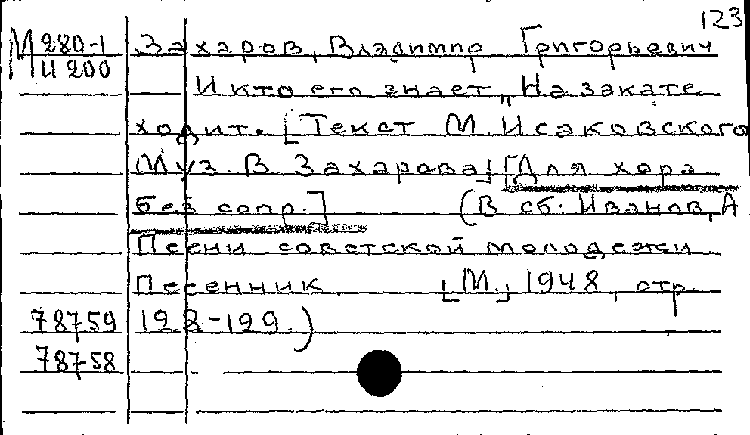 123
М 280-1 Захаров, Владимир Григорьевич
И 200
И кто его знает „На закате
ходит. [Текст М. Исаковского
Муз. В. Захарова] [Для хора
без сопр.] (В сб: Иванов, А
Песни советской молодежи
Песенник. [М.] 1948, стр.
78759 128-129.)
78758